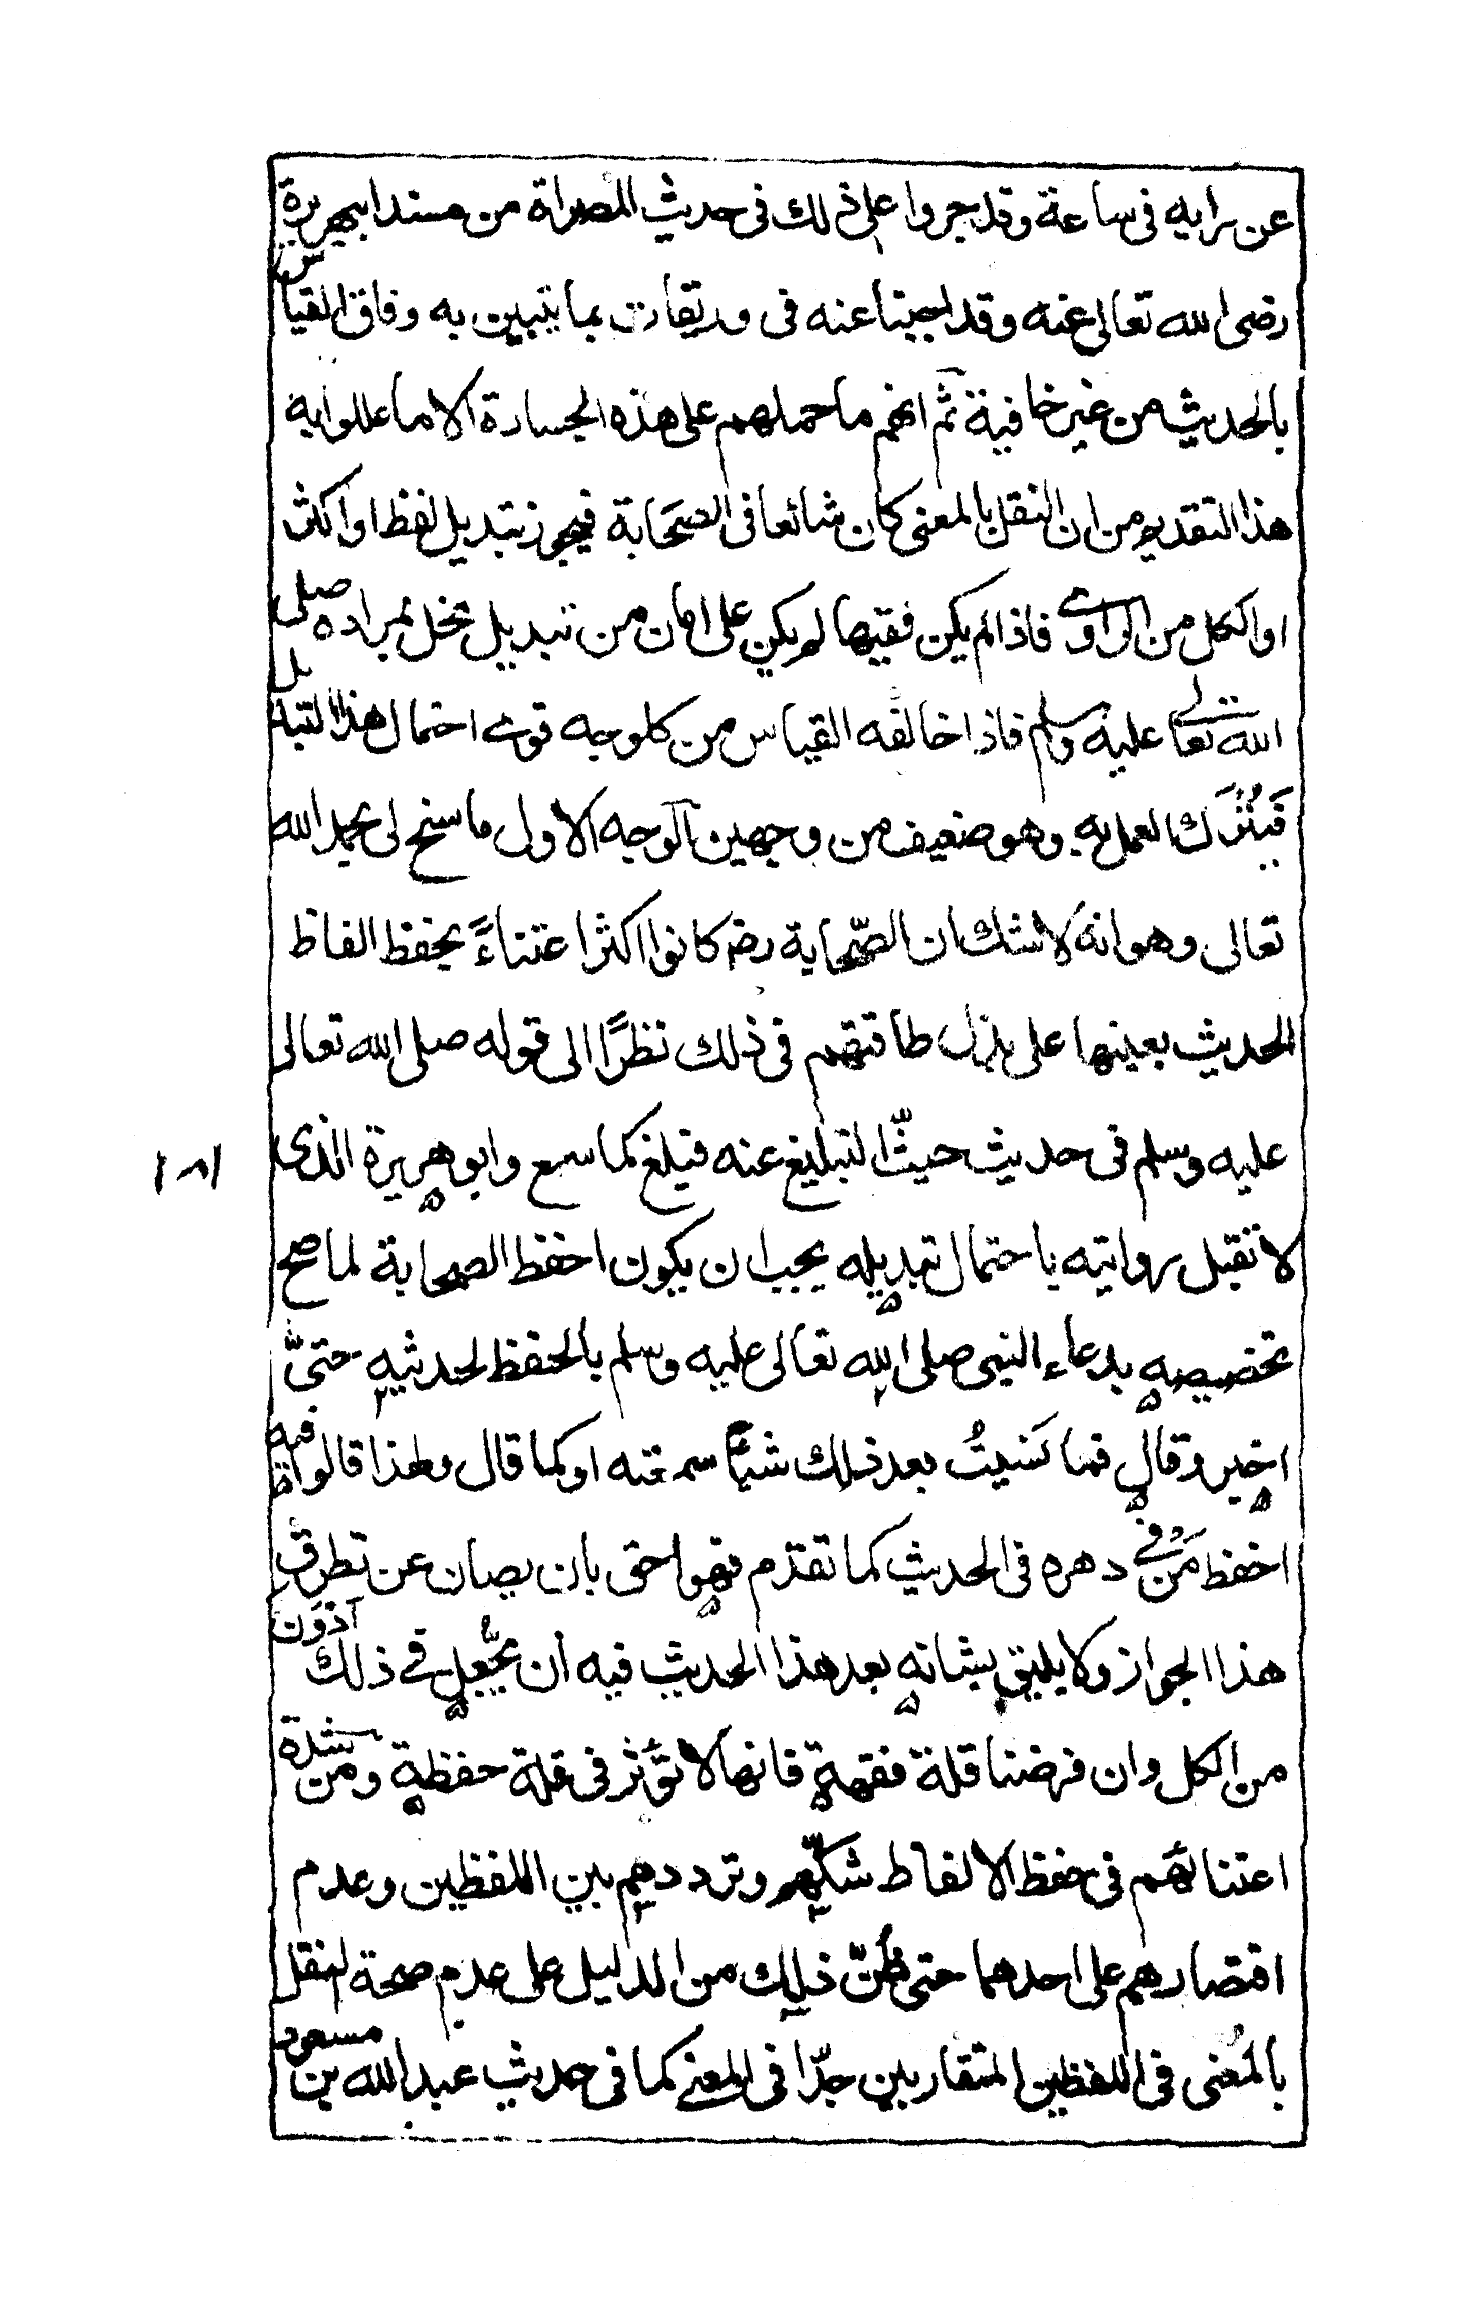 عن رايه فى ساعة وقد جروا على ذلك فى حديث المصراة من مسند ابيهريرة
رضى الله تعالى عنه وقد اجبنا عنه فى وريقات بما يتبين به وفاق القياس
بالحديث من غير خافية ثم انهم ما حملهم على هذه الجسارة الا ما عللوا به
هذا التقديم من ان النقل بالمعنى كان شائعا فى الصحابة فيجوز تبديل لفظ او اكثر
او الكل من الراوى فاذا لم يكن فقيها لم يكن على امان من تبديل مخل بمراده صلى
الله تعالى عليه وسلم فاذا خالفه القياس من كل وجه قوى احتمال هذا التبديل
فَيُتْرَك العمل به وهو ضعيف من وجهين الوجه الاول ما سنح لى بحمد الله
تعالى وهو انه لا شك ان الصّحابة رضـ كانوا اكثر اعتناءً بحفظ الفاظ
الحديث بعينها على بذل طاقتهم فى ذلك نظرًا الى قوله صلى الله تعالى
عليه وسلم فى حديث حيث لتبليغ عنه فبلغ كما سمع وابو هريرة الذى
١٨١
لا تقبل روايته باحتمال تبديله يجب ان يكون احفظ الصحابة لما صح
تخصيصه بدعاء النبى صلى الله تعالى عليه وسلم بالحفظ لحديثه حتىّ
اخبر وقال فما نَسَيتُ بعد ذلك شيأً سمعته او كما قال ولهذا قالوا فيه
احفظ مَنْ فى دهره فى الحديث كما تقدم فهو احق بان يصان عن تطرق
هذا الجواز ولا يليق بشانه بعد هذا الحديث فيه ان يُجْعل فى ذلك آذْوَن
من الكل وان فرضنا قلة فقهه فانها لا تؤثر فى قلة حفظه ومن شدة
اعتنائهم فى حفظ الالفاظ شكّهم وترددهم بين اللفظين وعدم
اقتصارهم على احدهما حتى ظُنّ ذلك من الدليل على عدم صحة النقل
بالمعنى فى اللفظين المتقاربين جدّا فى المعنى كما فى حديث عبد الله بن مسعود